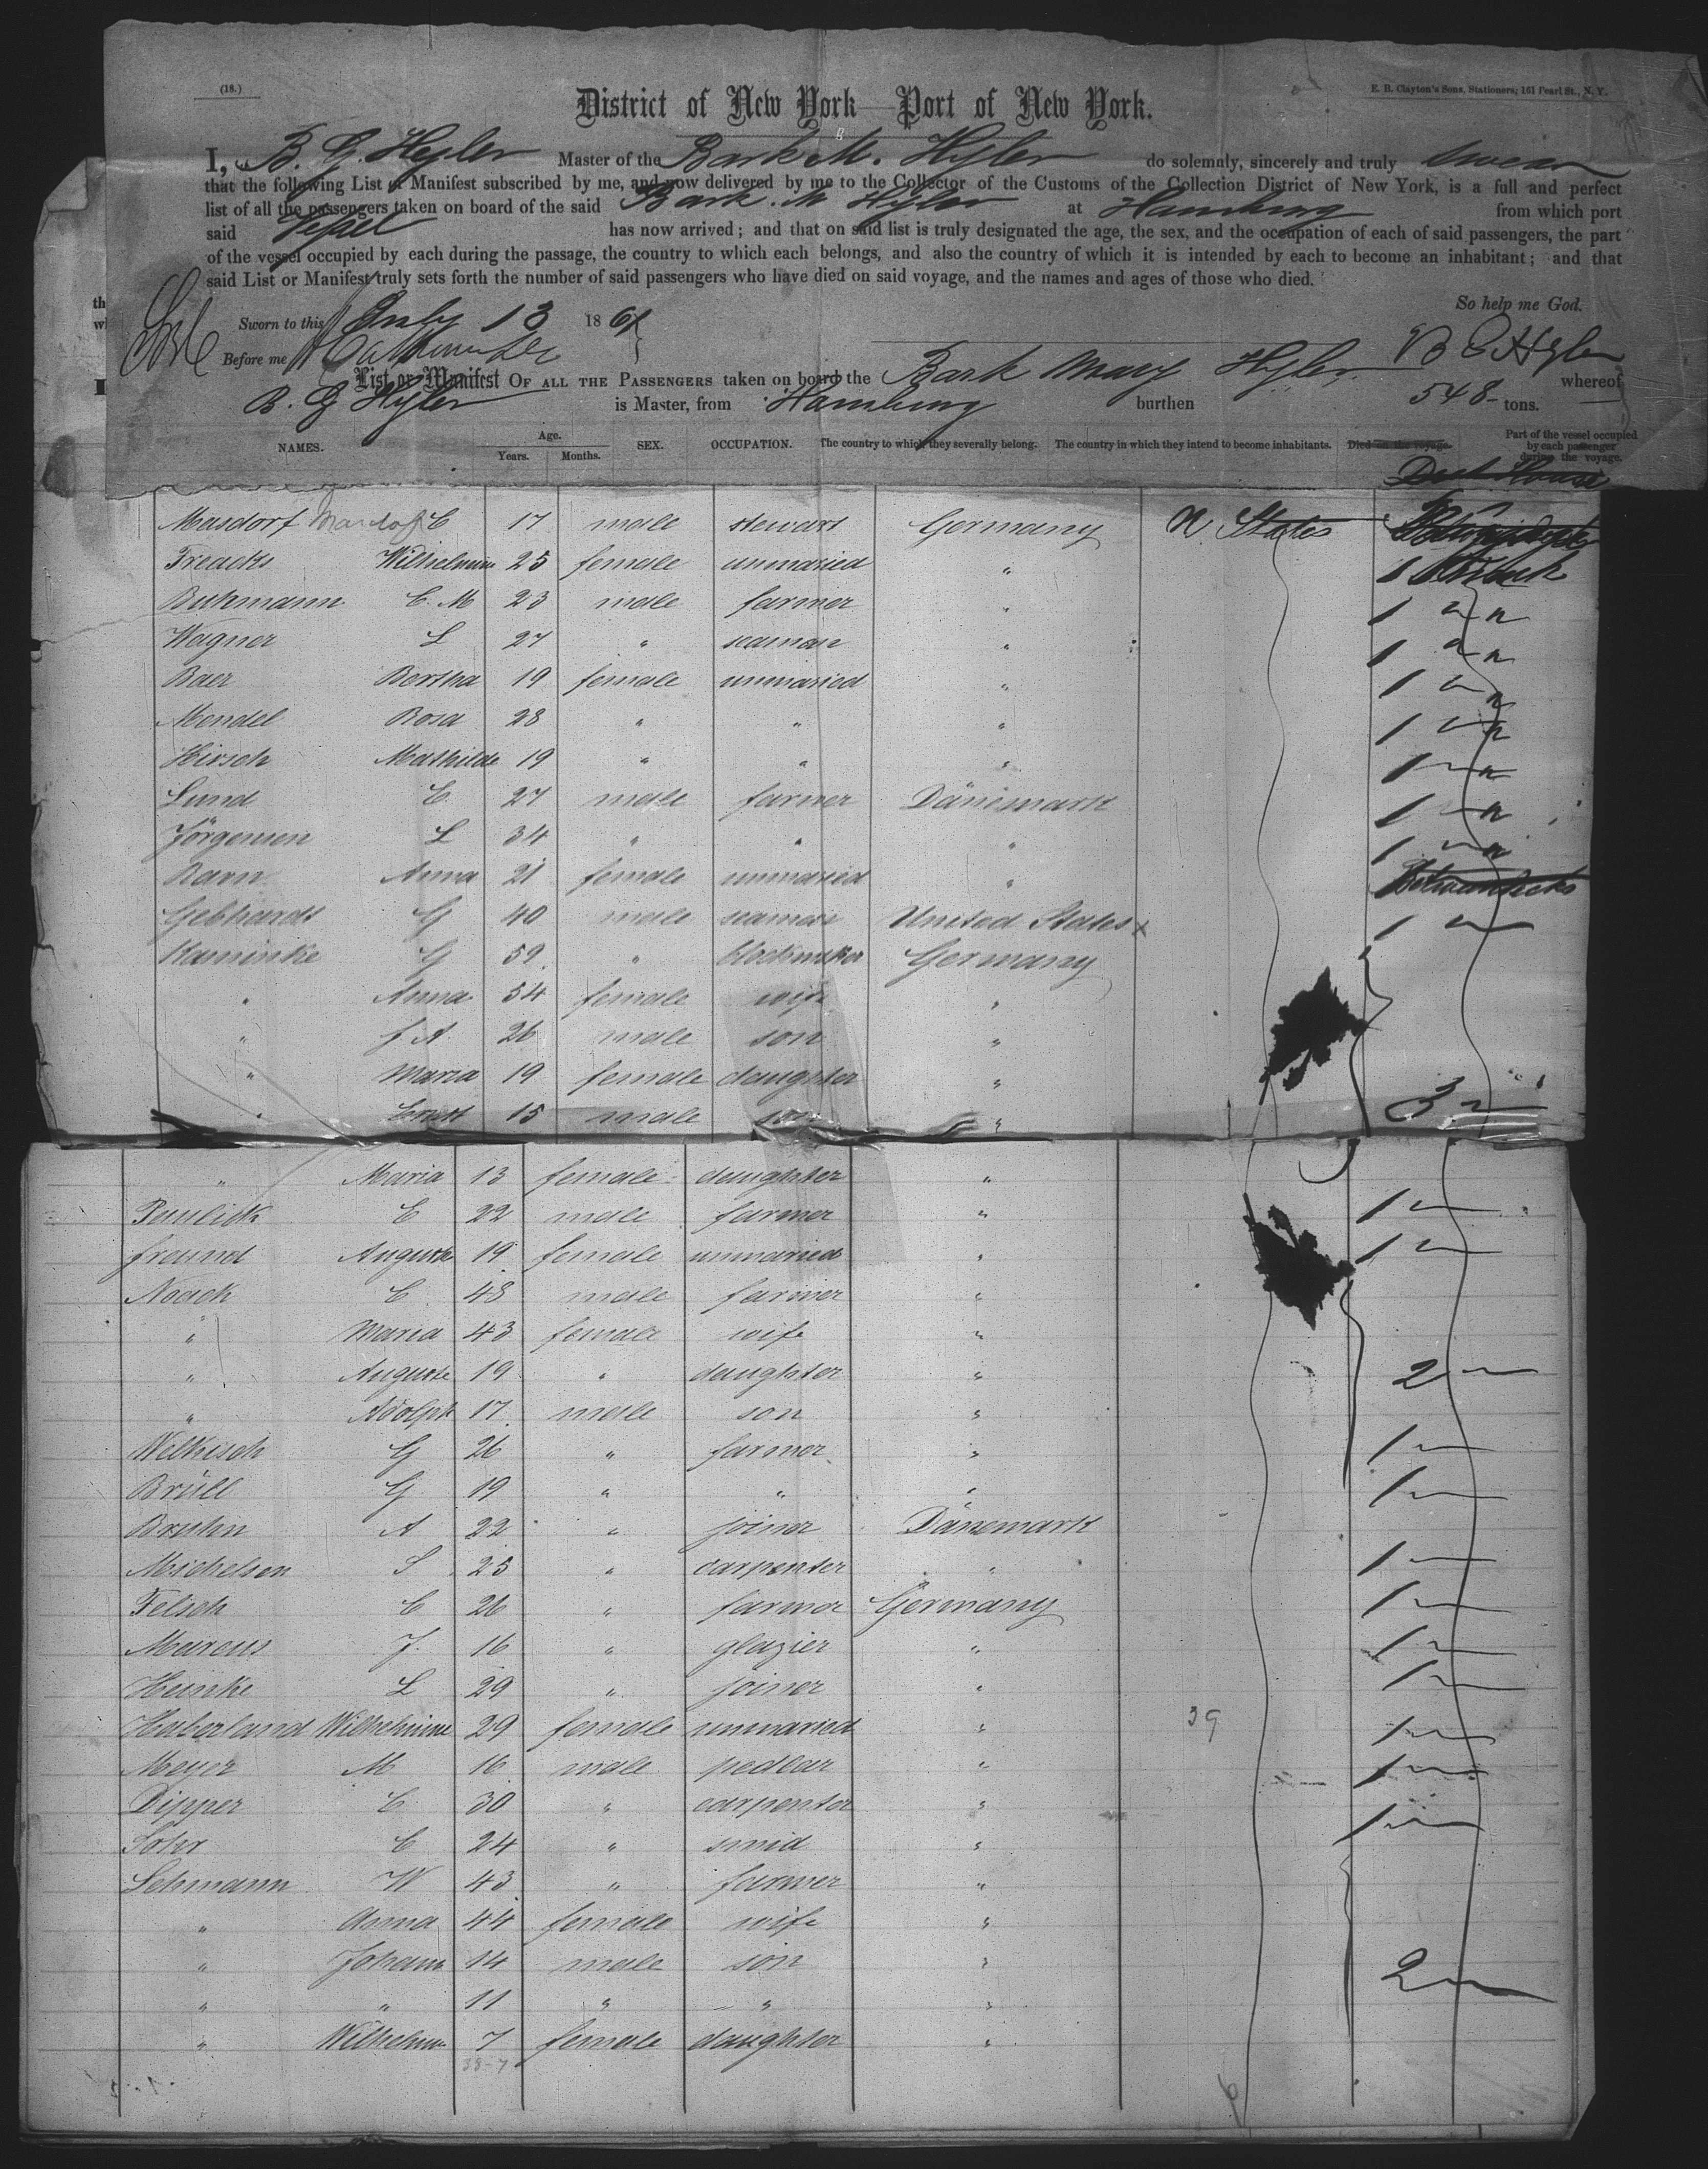 (18.)
E. B. Clayton's Sons, Stationers, 161 Pearl St., N. Y.
District of New York—Port of New York.
I, B. G. Hyler Master of the Bark M. Hyler do solemnly, sincerely and truly swear
that the following List or Manifest subscribed by me, and now delivered by me to the Collector of the Customs of the Collection District of New York, is a full and perfect
list of all the passengers taken on board of the said Bark M Hyler at Hamburg from which port
said Vessel has now arrived; and that on said list is truly designated the age, the sex, and the occupation of each of said passengers, the part
of the vessel occupied by each during the passage, the country to which each belongs, and also the country of which it is intended by each to become an inhabitant; and that
said List or Manifest truly sets forth the number of said passengers who have died on said voyage, and the names and ages of those who died.
So help me God.
Sworn to this July 13 186
Before me
B G Hyler
List or Manifest OF ALL THE PASSENGERS taken on board the Bark Mary Hyler whereof
B. G Hyler is Master, from Hamburg burthen 548 tons.
NAMES. Age. Years. Months. SEX. OCCUPATION. The country to which they severally belong. The country in which they intend to become inhabitants. Died on the voyage. Part of the vessel occupied by each passenger during the voyage.
Deck House
Masdorf C 17 male stewart Germany U States
Freacks Wilhelmine 25 female unmaried " 1
Buhmann C. M 23 male farmer " 1 " "
Wagner L 27 " seaman " 1 " "
Baer Bertha 19 female unmaried " 1 " "
Mendel Rosa 28 " " " 1 " "
Hirsch Mathilde 19 " " " 1 " "
Lund C. 27 male farmer Dänemark 1 " "
Jörgensen L 34 " " " 1 " "
Ravn Anna 21 female unmaried "
Gebhardt G 40 male seaman United States x 1 "
Kaminke G 59 " blockmaker Germany
" Anna 54 female wife "
" J A. 26 male son "
" Maria 19 female daughter "
" Ernst 15 male son " 3 "
" Maria 13 female daughter "
Paulick C 22 male farmer " 1 "
Freund Auguste 19 female unmaried " 1 "
Noack C. 48 male farmer "
" Maria 43 female wife "
" Auguste 19 " daughter " 2 "
" Adolph 17 male son "
Welkisch G 26 " farmer " 1 "
Brüll G 19 " " " 1 "
Bruhn A 22 " joiner Dänemark
Michelsen S 25 " carpenter " 1 "
Felsch C 26 " farmer Germany 1 "
Marcus J. 16 " glazier " 1 "
Heinke L 29 " joiner " 1 "
Haberland Wilhelmine 29 female unmaried " 39 1 "
Meyer M 16 male pedlar " 1 "
Dipper C. 30 " carpenter " 1 "
Sohr C 24 " smid "
Lehmann W 43 " farmer "
" Anna 44 female wife "
" Johann 14 male son " 2 "
" " 11 " " "
" Wilhelmine 7 female daughter "
38-7